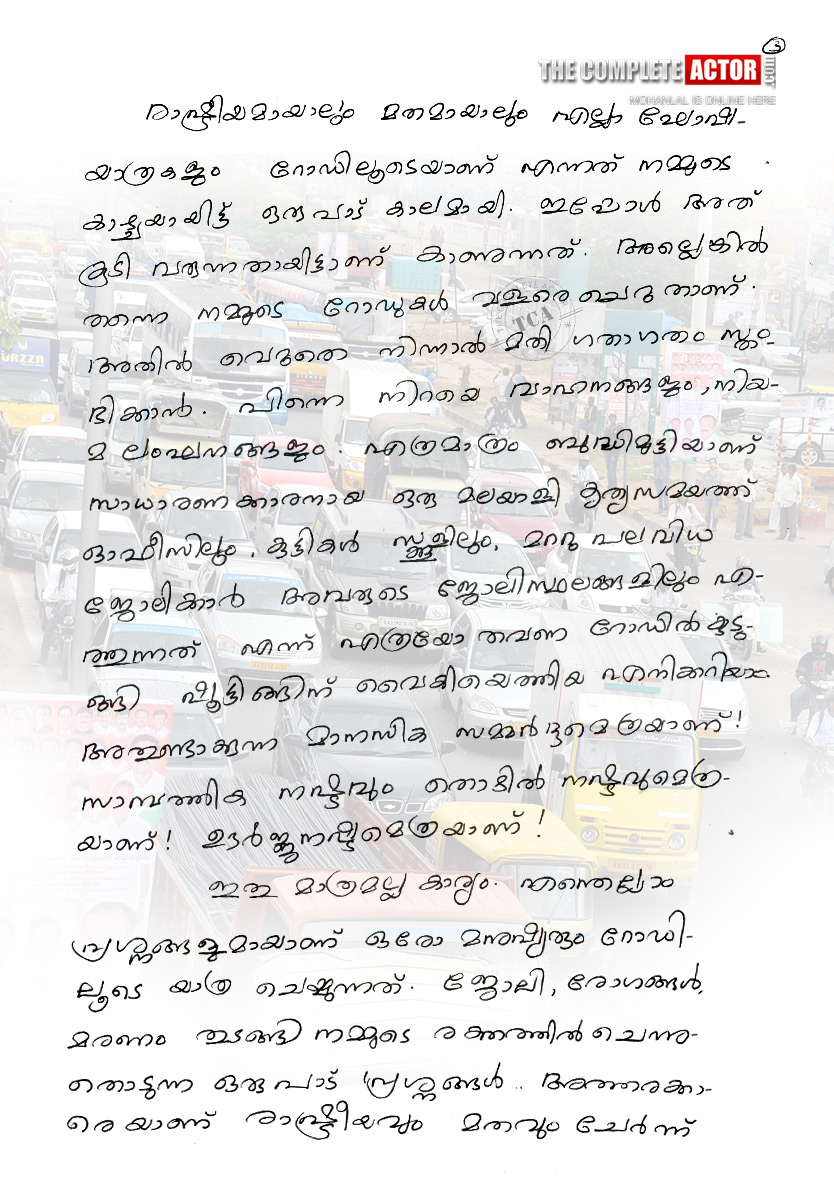 3
THE COMPLETE ACTOR .com
MOHANLAL IS ONLINE HERE
രാഷ്ട്രീയമായാലും മതമായാലും എല്ലാ ഘോഷ-
യാത്രകളും റോഡിലൂടെയാണ് എന്നത് നമ്മുടെ
കാഴ്ചയായിട്ട് ഒരുപാട് കാലമായി. ഇപ്പോൾ അത്
കൂടി വരുന്നതായിട്ടാണ് കാണുന്നത്. അല്ലെങ്കിൽ
തന്നെ നമ്മുടെ റോഡുകൾ വളരെ ചെറുതാണ്.
TCA
അതിൽ വെറുതെ നിന്നാൽ മതി ഗതാഗതം സ്തം-
ഭിക്കാൻ. പിന്നെ നിറയെ വാഹനങ്ങളും, നിയ-
മ ലംഘനങ്ങളും. എത്രമാത്രം ബുദ്ധിമുട്ടിയാണ്
സാധാരണക്കാരനായ ഒരു മലയാളി കൃത്യസമയത്ത്
ഓഫീസിലും, കുട്ടികൾ സ്കൂളിലും, മറ്റു പലവിധ
ജോലിക്കാർ അവരുടെ ജോലിസ്ഥലങ്ങളിലും എ-
ത്തുന്നത് എന്ന് എത്രയോ തവണ റോഡിൽ കുടു-
ങ്ങി ഷൂട്ടിങ്ങിന് വൈകിയെത്തിയ എനിക്കറിയാം
അതുണ്ടാക്കുന്ന മാനസിക സമ്മർദ്ദമെത്രയാണ്!
സാമ്പത്തിക നഷ്ടവും തൊഴിൽ നഷ്ടവുമെത്ര-
യാണ്! ഊർജ്ജനഷ്ടമെത്രയാണ്!
ഇതു മാത്രമല്ല കാര്യം. എന്തെല്ലാം
പ്രശ്നങ്ങളുമായാണ് ഓരോ മനുഷ്യരും റോഡി-
ലൂടെ യാത്ര ചെയ്യുന്നത്. ജോലി, രോഗങ്ങൾ,
മരണം തുടങ്ങി നമ്മുടെ രക്തത്തിൽ ചെന്നു-
തൊടുന്ന ഒരുപാട് പ്രശ്നങ്ങൾ.. അത്തരക്കാ-
രെയാണ് രാഷ്ട്രീയവും മതവും ചേർന്ന്